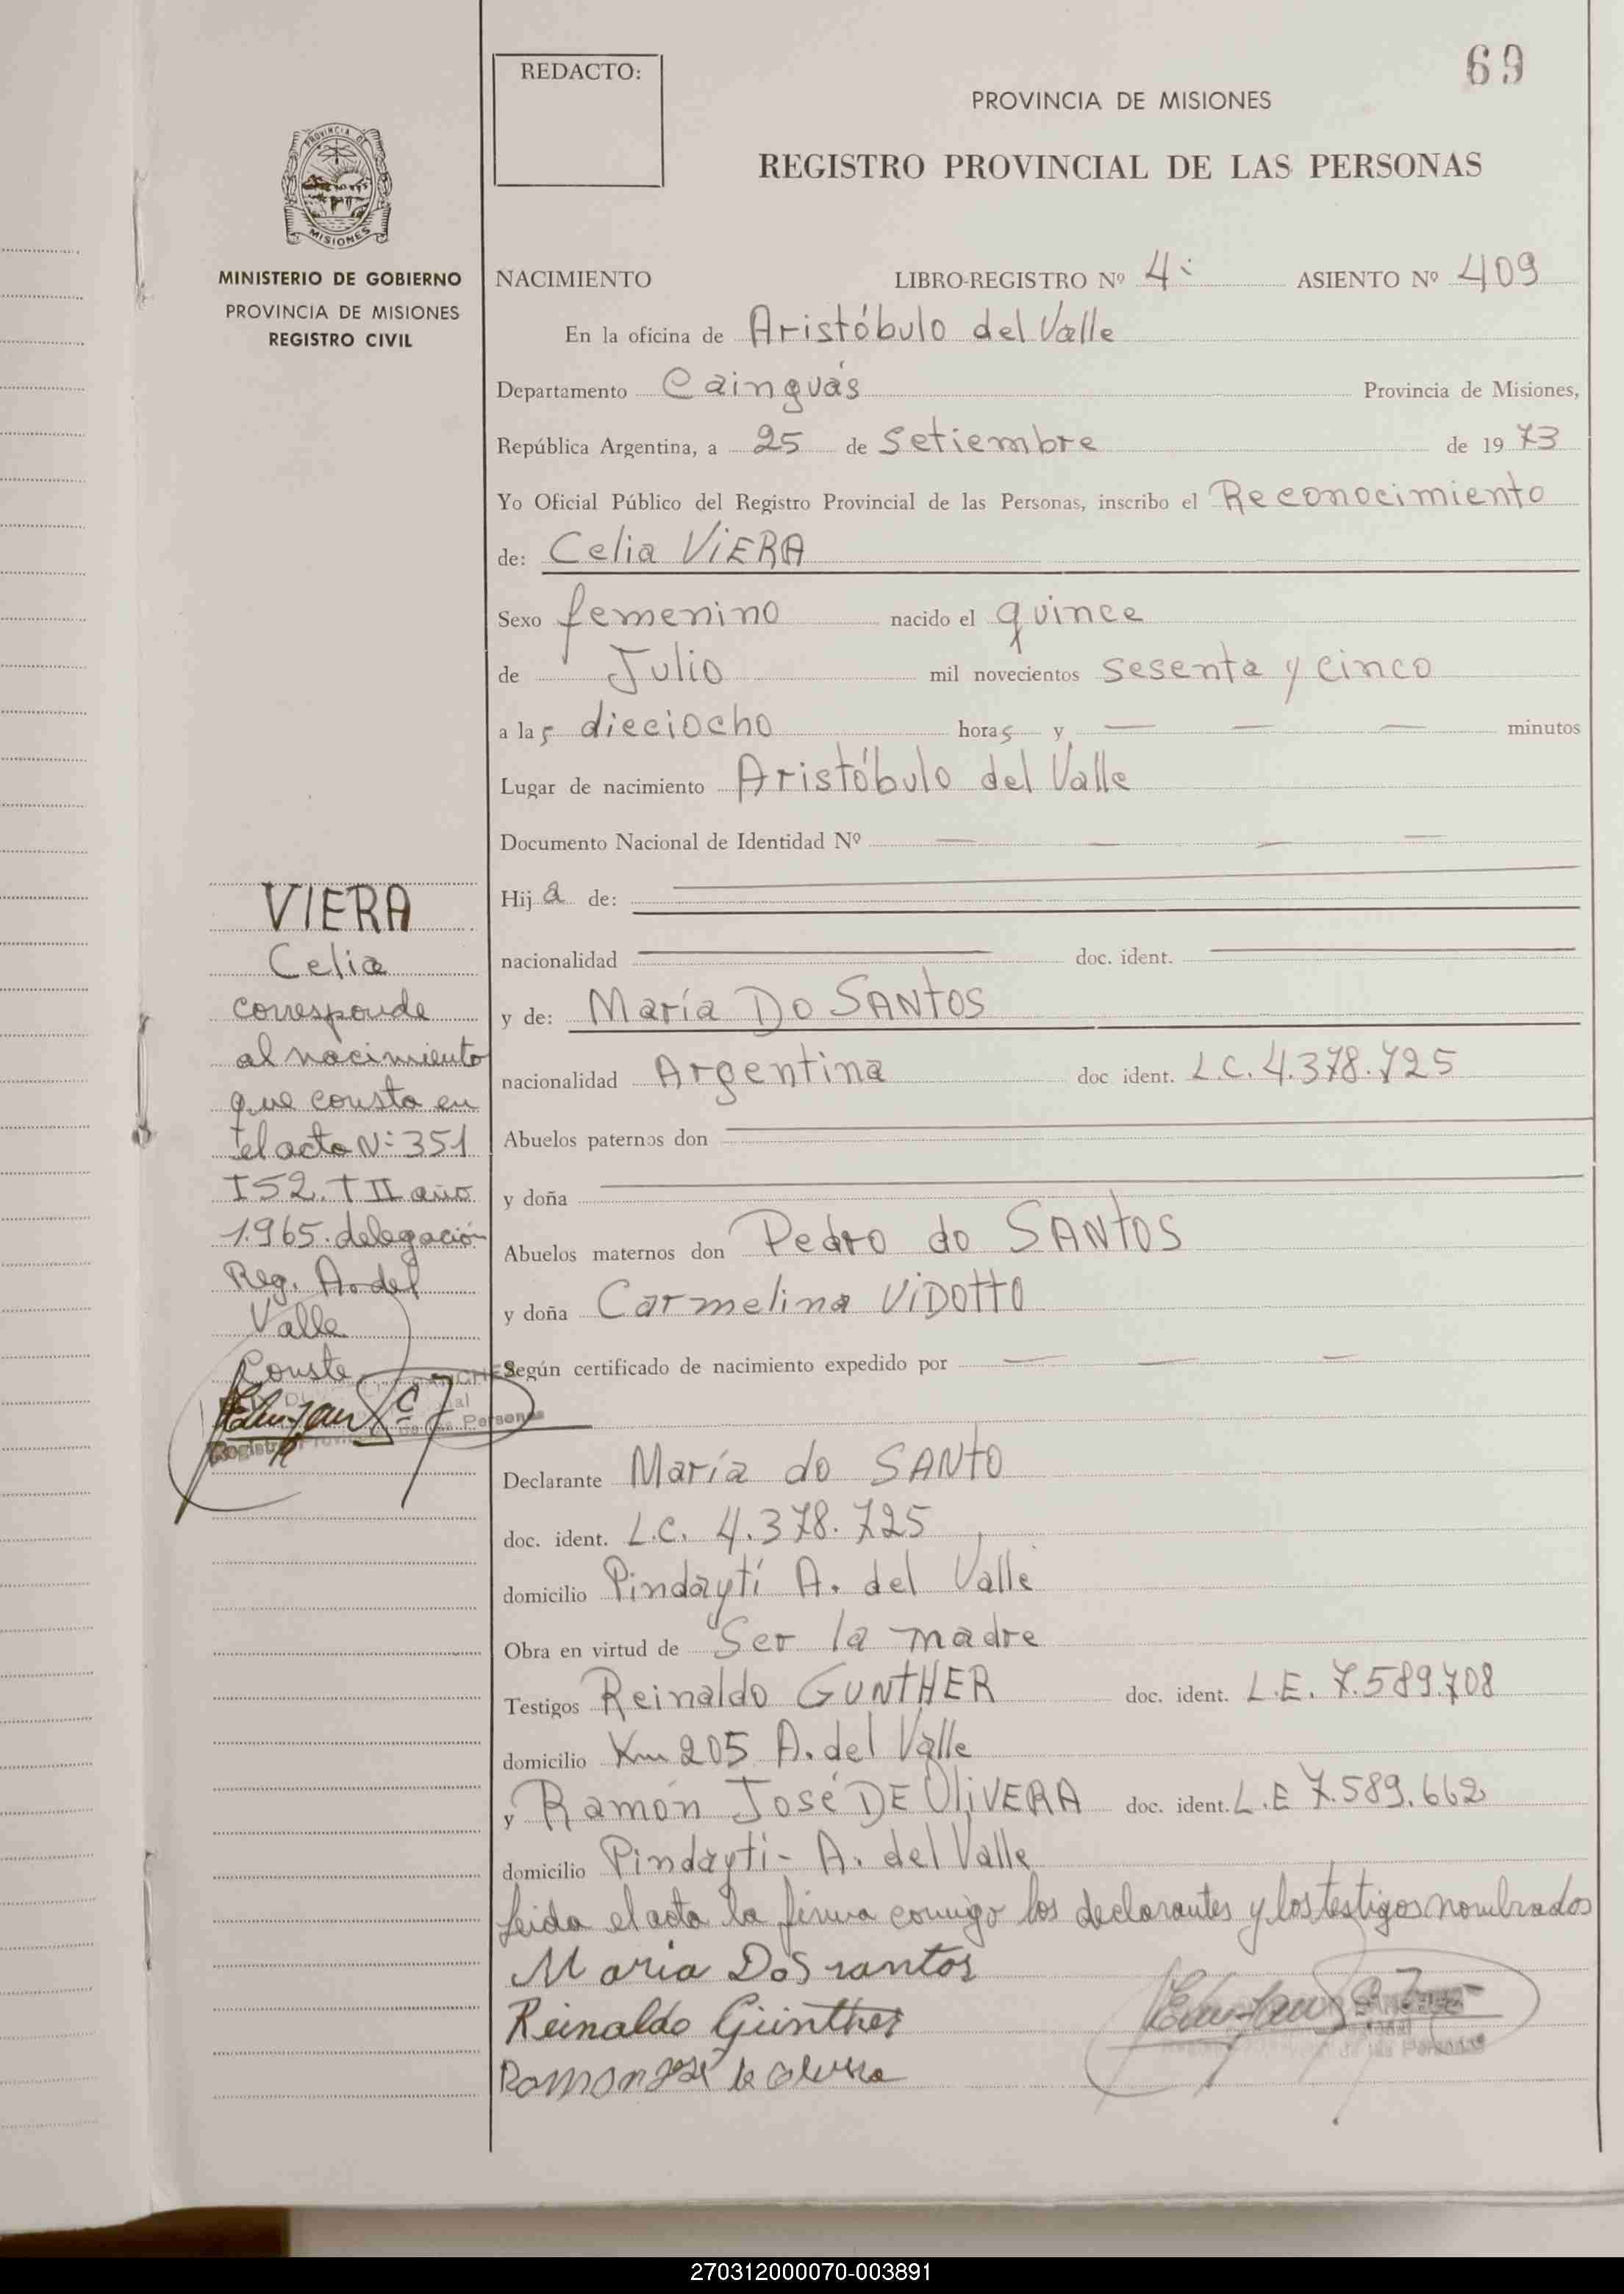 REDACTO:
69
PROVINCIA DE MISIONES
REGISTRO PROVINCIAL DE LAS PERSONAS
PROVINCIA DE
MISIONES
MINISTERIO DE GOBIERNO
PROVINCIA DE MISIONES
REGISTRO CIVIL
NACIMIENTO LIBRO-REGISTRO Nº 4: ASIENTO Nº 409
En la oficina de Aristóbulo del Valle
Departamento Cainguás Provincia de Misiones,
República Argentina, a 25 de Setiembre de 1973
Yo Oficial Público del Registro Provincial de las Personas, inscribo el Reconocimiento
de: Celia VIERA
Sexo femenino nacido el quince
de Julio mil novecientos sesenta y cinco
a las dieciocho horas y — — — minutos
Lugar de nacimiento Aristóbulo del Valle
Documento Nacional de Identidad Nº — — — —
Hija de:
nacionalidad doc. ident.
y de: María Do SANTOS
nacionalidad Argentina doc ident. L.C. 4.378.725
Abuelos paternos don
y doña
Abuelos maternos don Pedro do SANTOS
y doña Carmelina VIDOTTO
Según certificado de nacimiento expedido por — — —
Declarante María do SANTO
doc. ident. L.C. 4.378.725
domicilio Pindaytí A. del Valle
Obra en virtud de Ser la madre
Testigos Reinaldo GUNTHER doc. ident. L.E. 7.589.708
domicilio Km 205 A. del Valle
y Ramón José DE OLIVERA doc. ident. L.E 7.589.662
domicilio Pindayti - A. del Valle
Leida el acta la firma conmigo los declarantes y los testigos nombrados
Maria Dos santos
Reinaldo Günther
Ramon José de Olivera
VIERA
Celia
corresponde
al nacimiento
que consta en
el acta Nº 351
T52. T II año
1965. delegación
Reg. A. del
Valle
Conste
Registro Provincial de las Personas
270312000070-003891